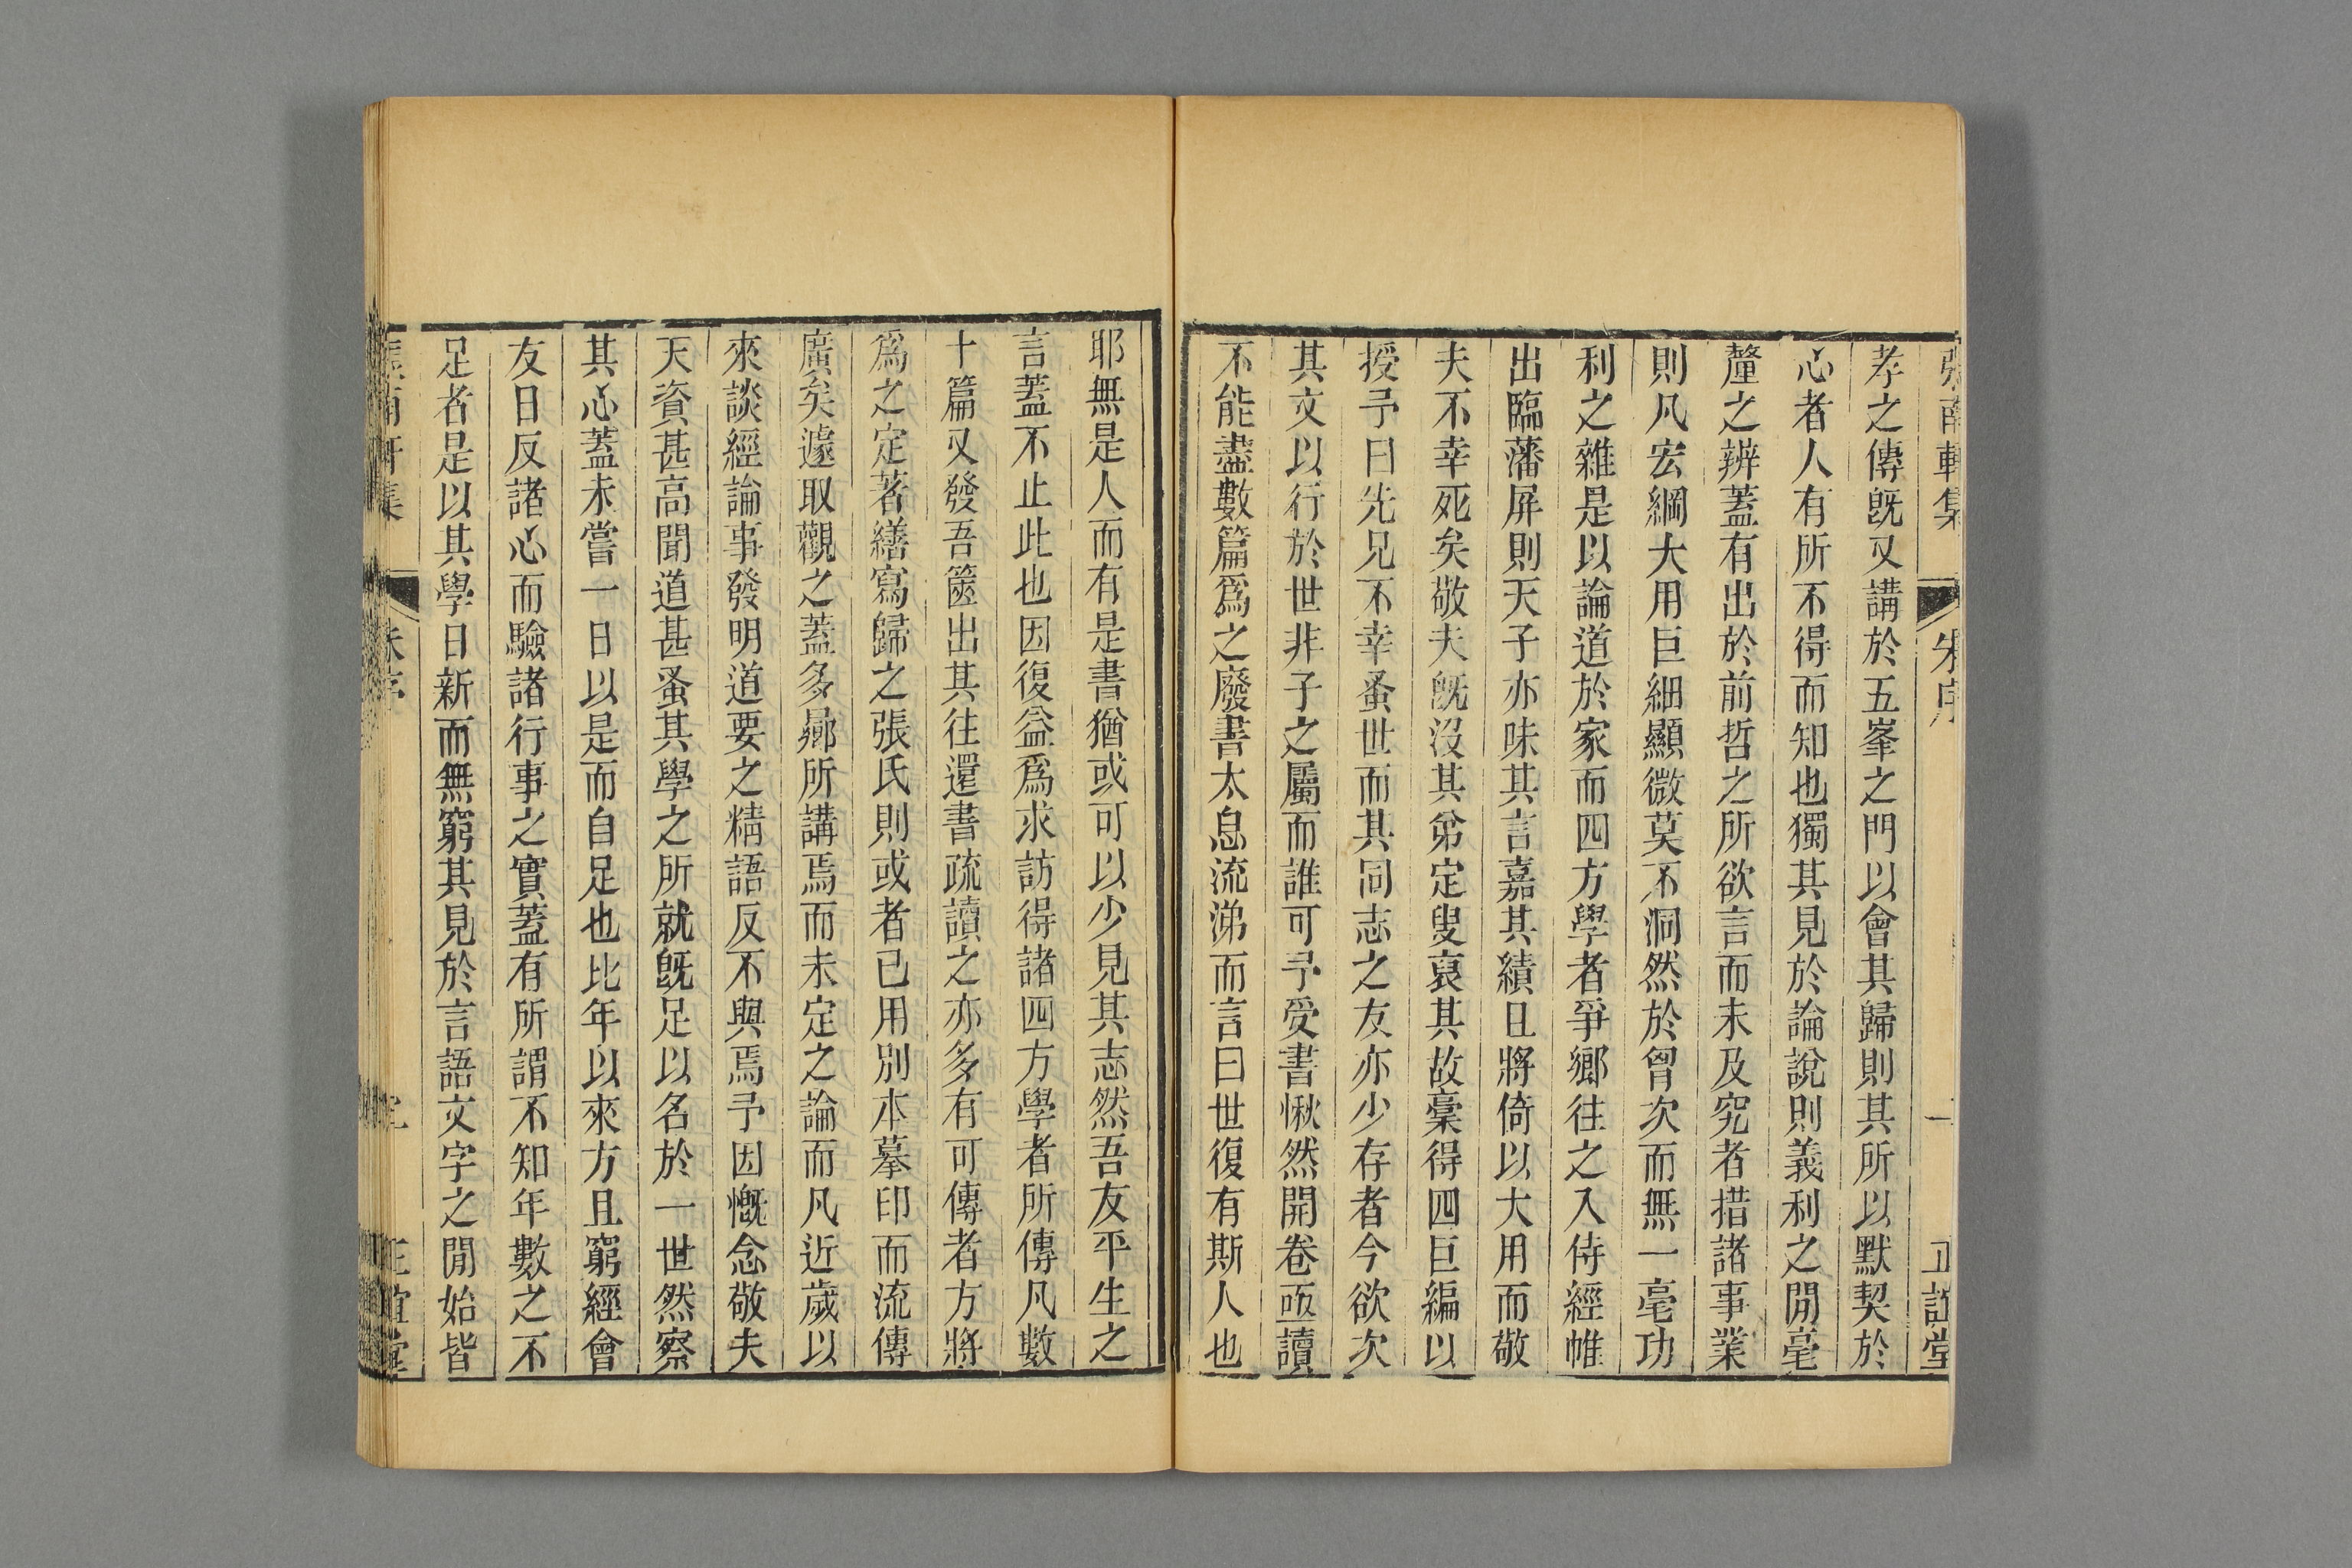 張南軒集
朱序
一
正誼堂
孝之傳旣又講於五峯之門以會其歸則其所以默契於
心者人有所不得而知也獨其見於論說則義利之閒毫
釐之辨蓋有出於前哲之所欲言而未及究者措諸事業
則凡宏綱大用巨細顯微莫不洞然於曾次而無一毫功
利之雜是以論道於家而四方學者爭鄉往之入侍經帷
出臨藩屏則天子亦味其言嘉其績且將倚以大用而敬
夫不幸死矣敬夫旣沒其弟定叟裒其故稾得四巨編以
授予曰先兄不幸蚤世而其同志之友亦少存者今欲次
其文以行於世非子之屬而誰可予受書愀然開卷亟讀
不能盡數篇爲之廢書太息流涕而言曰世復有斯人也
耶無是人而有是書猶或可以少見其志然吾友平生之
言蓋不止此也因復益爲求訪得諸四方學者所傳凡數
十篇又發吾篋出其往還書疏讀之亦多有可傳者方將
爲之定著繕寫歸之張氏則或者已用別本摹印而流傳
廣矣遽取觀之蓋多曏所講焉而未定之論而凡近歲以
來談經論事發明道要之精語反不與焉予因慨念敬夫
天資甚高聞道甚蚤其學之所就旣足以名於一世然察
其心蓋未嘗一日以是而自足也比年以來方且窮經會
友日反諸心而驗諸行事之實蓋有所謂不知年數之不
足者是以其學日新而無窮其見於言語文字之閒始皆
張南軒集
朱序
正誼堂